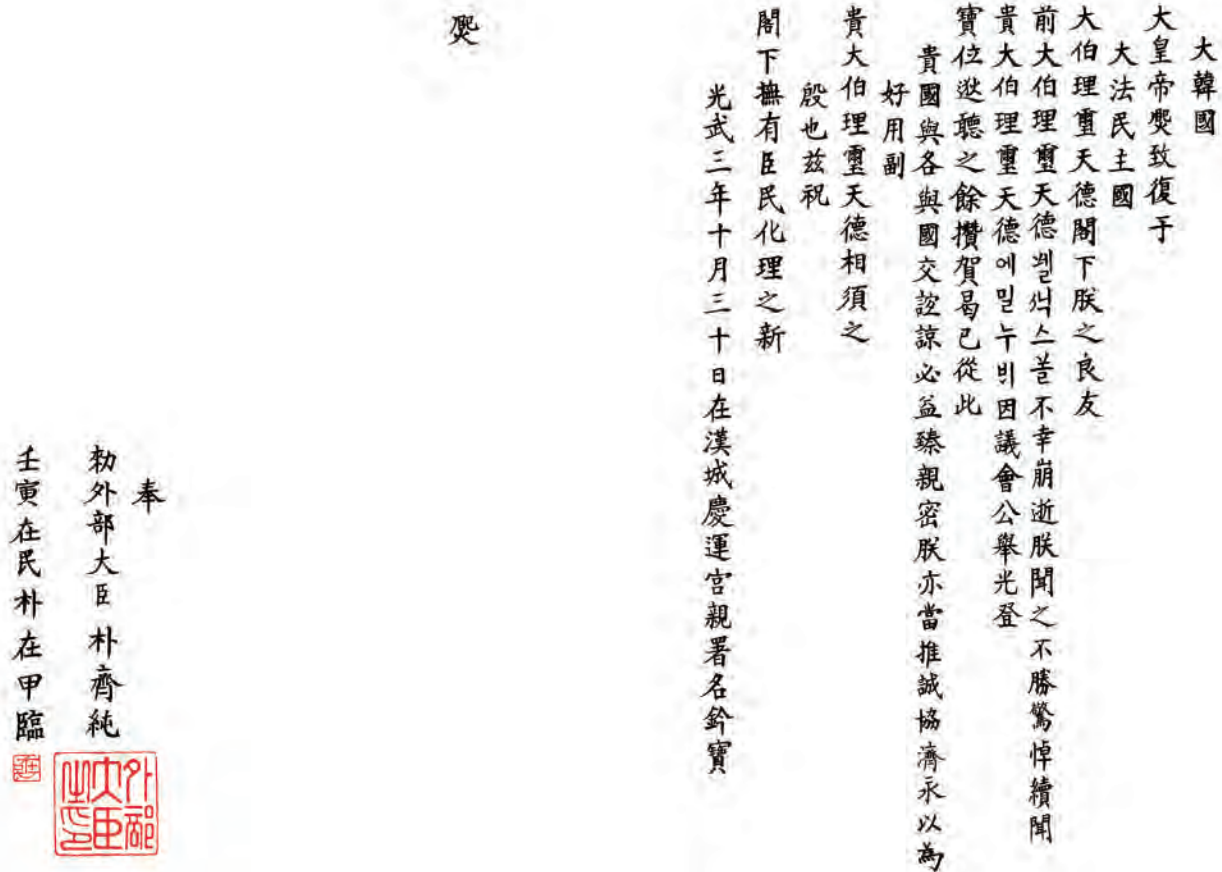 大韓國
大皇帝㷩致復于
大法民主國
大伯理璽天德閣下朕之良友
前大伯理璽天德 스 不幸崩逝朕聞之不勝驚悼續聞
貴大伯理璽天德에밀누븨因議會公舉光登
寶位逖聽之餘攢賀曷已從此
貴國與各與國交誼諒必益臻親密朕亦當推誠協濟永以為
好用副
貴大伯理璽天德相須之
殷也茲祝
閣下撫有臣民化理之新
光武三年十月三十日在漢城慶運宮親署名鈐寶
㷩
奉
勅外部大臣 朴齊純
外部大臣之印
壬寅在民朴在甲臨